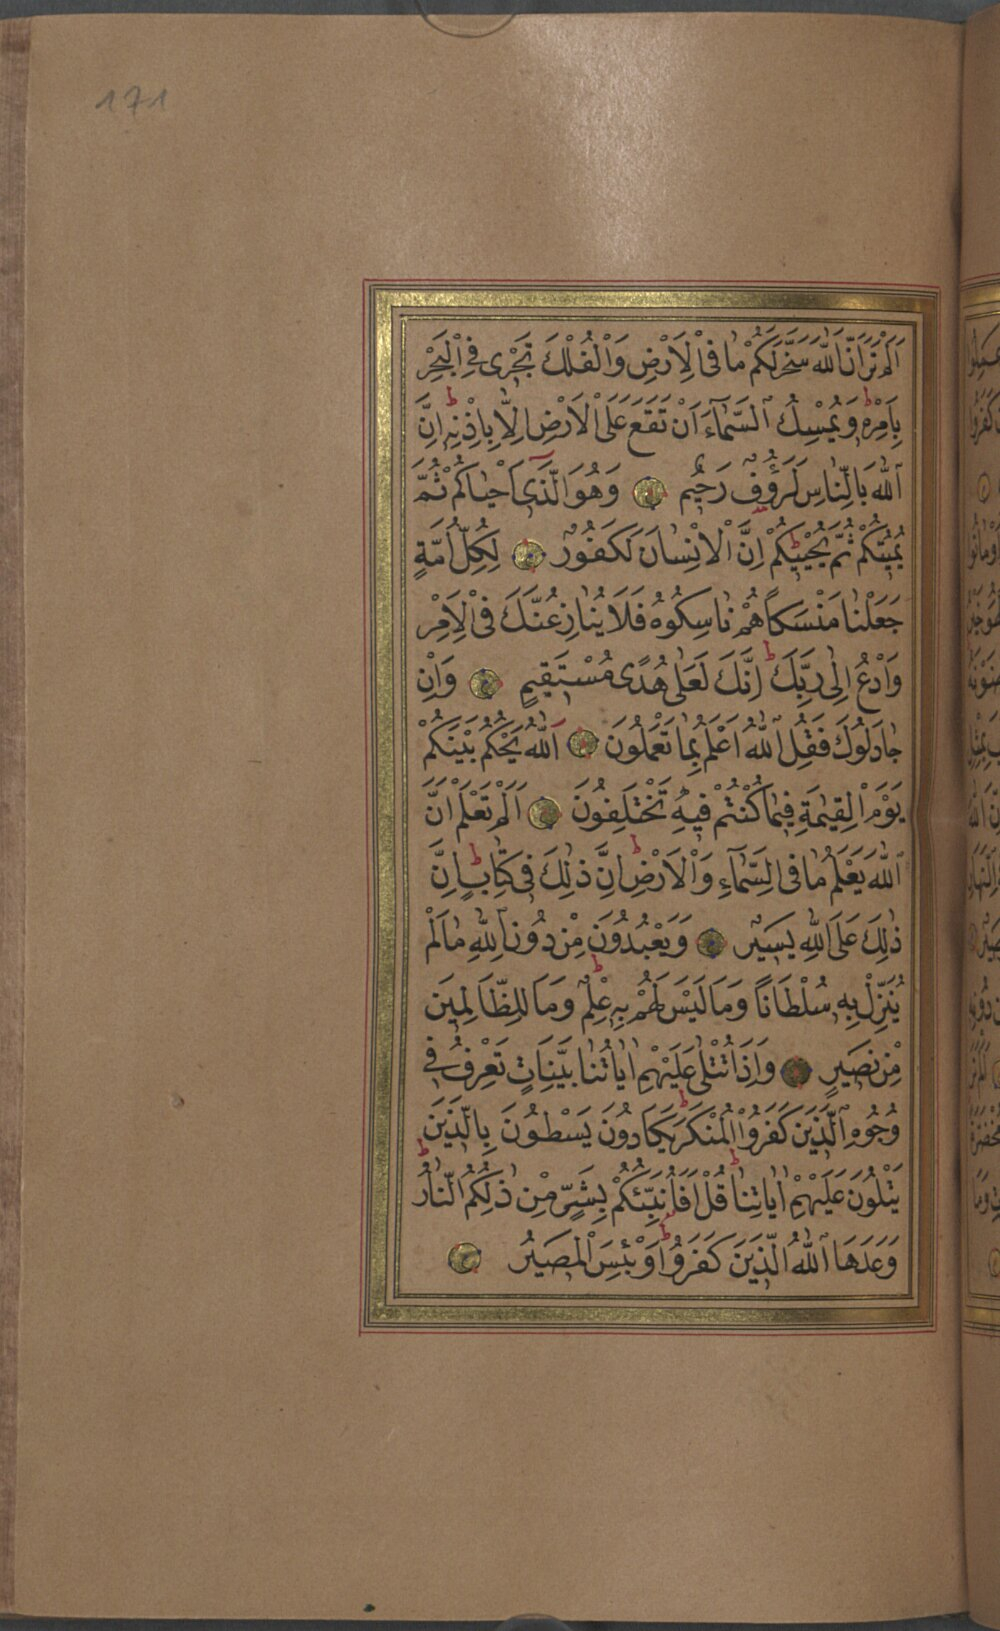 171
اَلَمْ تَرَ اَنَّ اللّٰهَ سَخَّرَ لَكُمْ مَا فِى الْاَرْضِ وَالْفُلْكَ تَجْرٖى فِى الْبَحْرِ
بِاَمْرِهٖ وَيُمْسِكُ السَّمَٓاءَ اَنْ تَقَعَ عَلَى الْاَرْضِ اِلَّا بِاِذْنِهٖ اِنَّ
اللّٰهَ بِالنَّاسِ لَرَؤُفٌ رَحٖيمٌ وَهُوَ الَّذٖٓى اَحْيَاكُمْ ثُمَّ
يُمٖيتُكُمْ ثُمَّ يُحْيٖيكُمْ اِنَّ الْاِنْسَانَ لَكَفُورٌ لِكُلِّ اُمَّةٍ
جَعَلْنَا مَنْسَكًا هُمْ نَاسِكُوهُ فَلَا يُنَازِعُنَّكَ فِى الْاَمْرِ
وَادْعُ اِلٰى رَبِّكَ اِنَّكَ لَعَلٰى هُدًى مُسْتَقٖيمٍ وَاِنْ
جَادَلُوكَ فَقُلِ اللّٰهُ اَعْلَمُ بِمَا تَعْمَلُونَ اَللّٰهُ يَحْكُمُ بَيْنَكُمْ
يَوْمَ الْقِيٰمَةِ فٖيمَا كُنْتُمْ فٖيهِ تَخْتَلِفُونَ اَلَمْ تَعْلَمْ اَنَّ
اللّٰهَ يَعْلَمُ مَا فِى السَّمَٓاءِ وَالْاَرْضِ اِنَّ ذٰلِكَ فٖى كِتَابٍ اِنَّ
ذٰلِكَ عَلَى اللّٰهِ يَسٖيرٌ وَيَعْبُدُونَ مِنْ دُونِ اللّٰهِ مَا لَمْ
يُنَزِّلْ بِهٖ سُلْطَانًا وَمَا لَيْسَ لَهُمْ بِهٖ عِلْمٌ وَمَا لِلظَّالِمٖينَ
مِنْ نَصٖيرٍ وَاِذَا تُتْلٰى عَلَيْهِمْ اٰيَاتُنَا بَيِّنَاتٍ تَعْرِفُ فٖى
وُجُوهِ الَّذٖينَ كَفَرُوا الْمُنْكَرَ يَكَادُونَ يَسْطُونَ بِالَّذٖينَ
يَتْلُونَ عَلَيْهِمْ اٰيَاتِنَا قُلْ اَفَاُنَبِّئُكُمْ بِشَرٍّ مِنْ ذٰلِكُمُ النَّارُ
وَعَدَهَا اللّٰهُ الَّذٖينَ كَفَرُوا وَبِئْسَ الْمَصٖيرُ